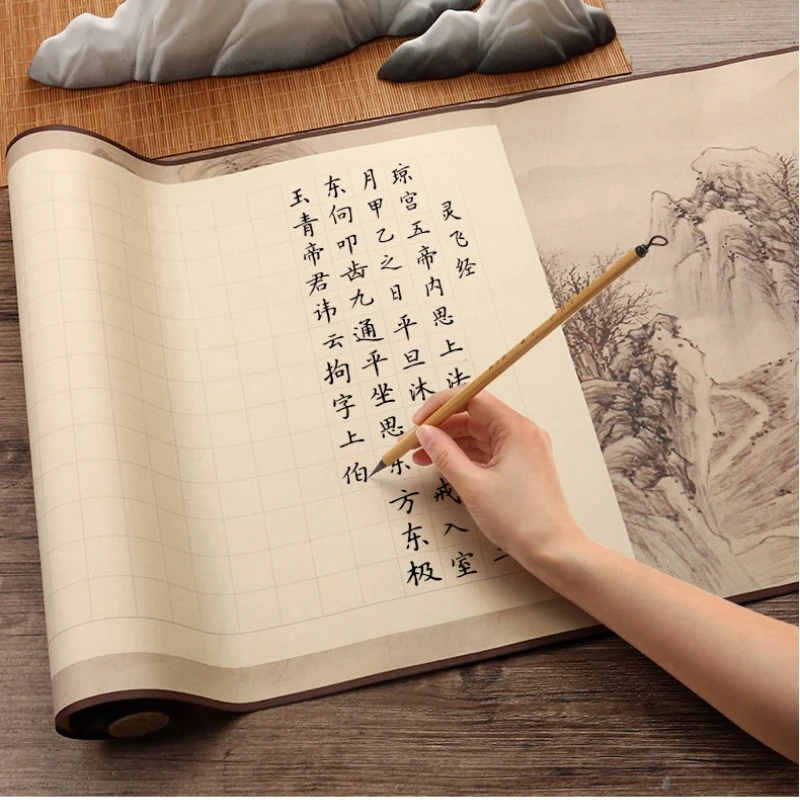 灵飞经
琼宫五帝内思上法 二
月甲乙之日平旦沐 戒入室
东向叩齿九通平坐思东方东极
玉青帝君讳云拘字上伯